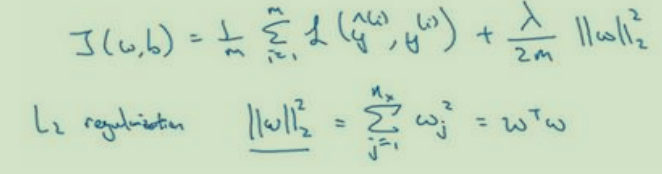 J(w,b) = 1/m Σ_{i=1}^{m} L(ŷ^{(i)}, y^{(i)}) + λ/2m ||w||_2^2
L_2 regularization ||w||_2^2 = Σ_{j=1}^{n_x} w_j^2 = w^T w